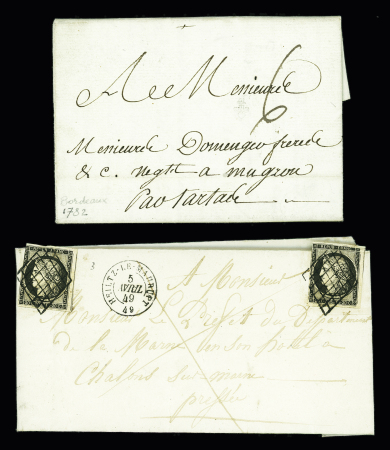 A Monsieur
6
Monsieur Domenger frere
& c. negt a mugron
par tartas
Bordeaux
1732
3
HEILTZ-LE-MAURUPT
5
AVRIL
49
49
A Monsieur
Le Préfet du Département
de la Marne en son hotel à
Chalons sur marne
pressée